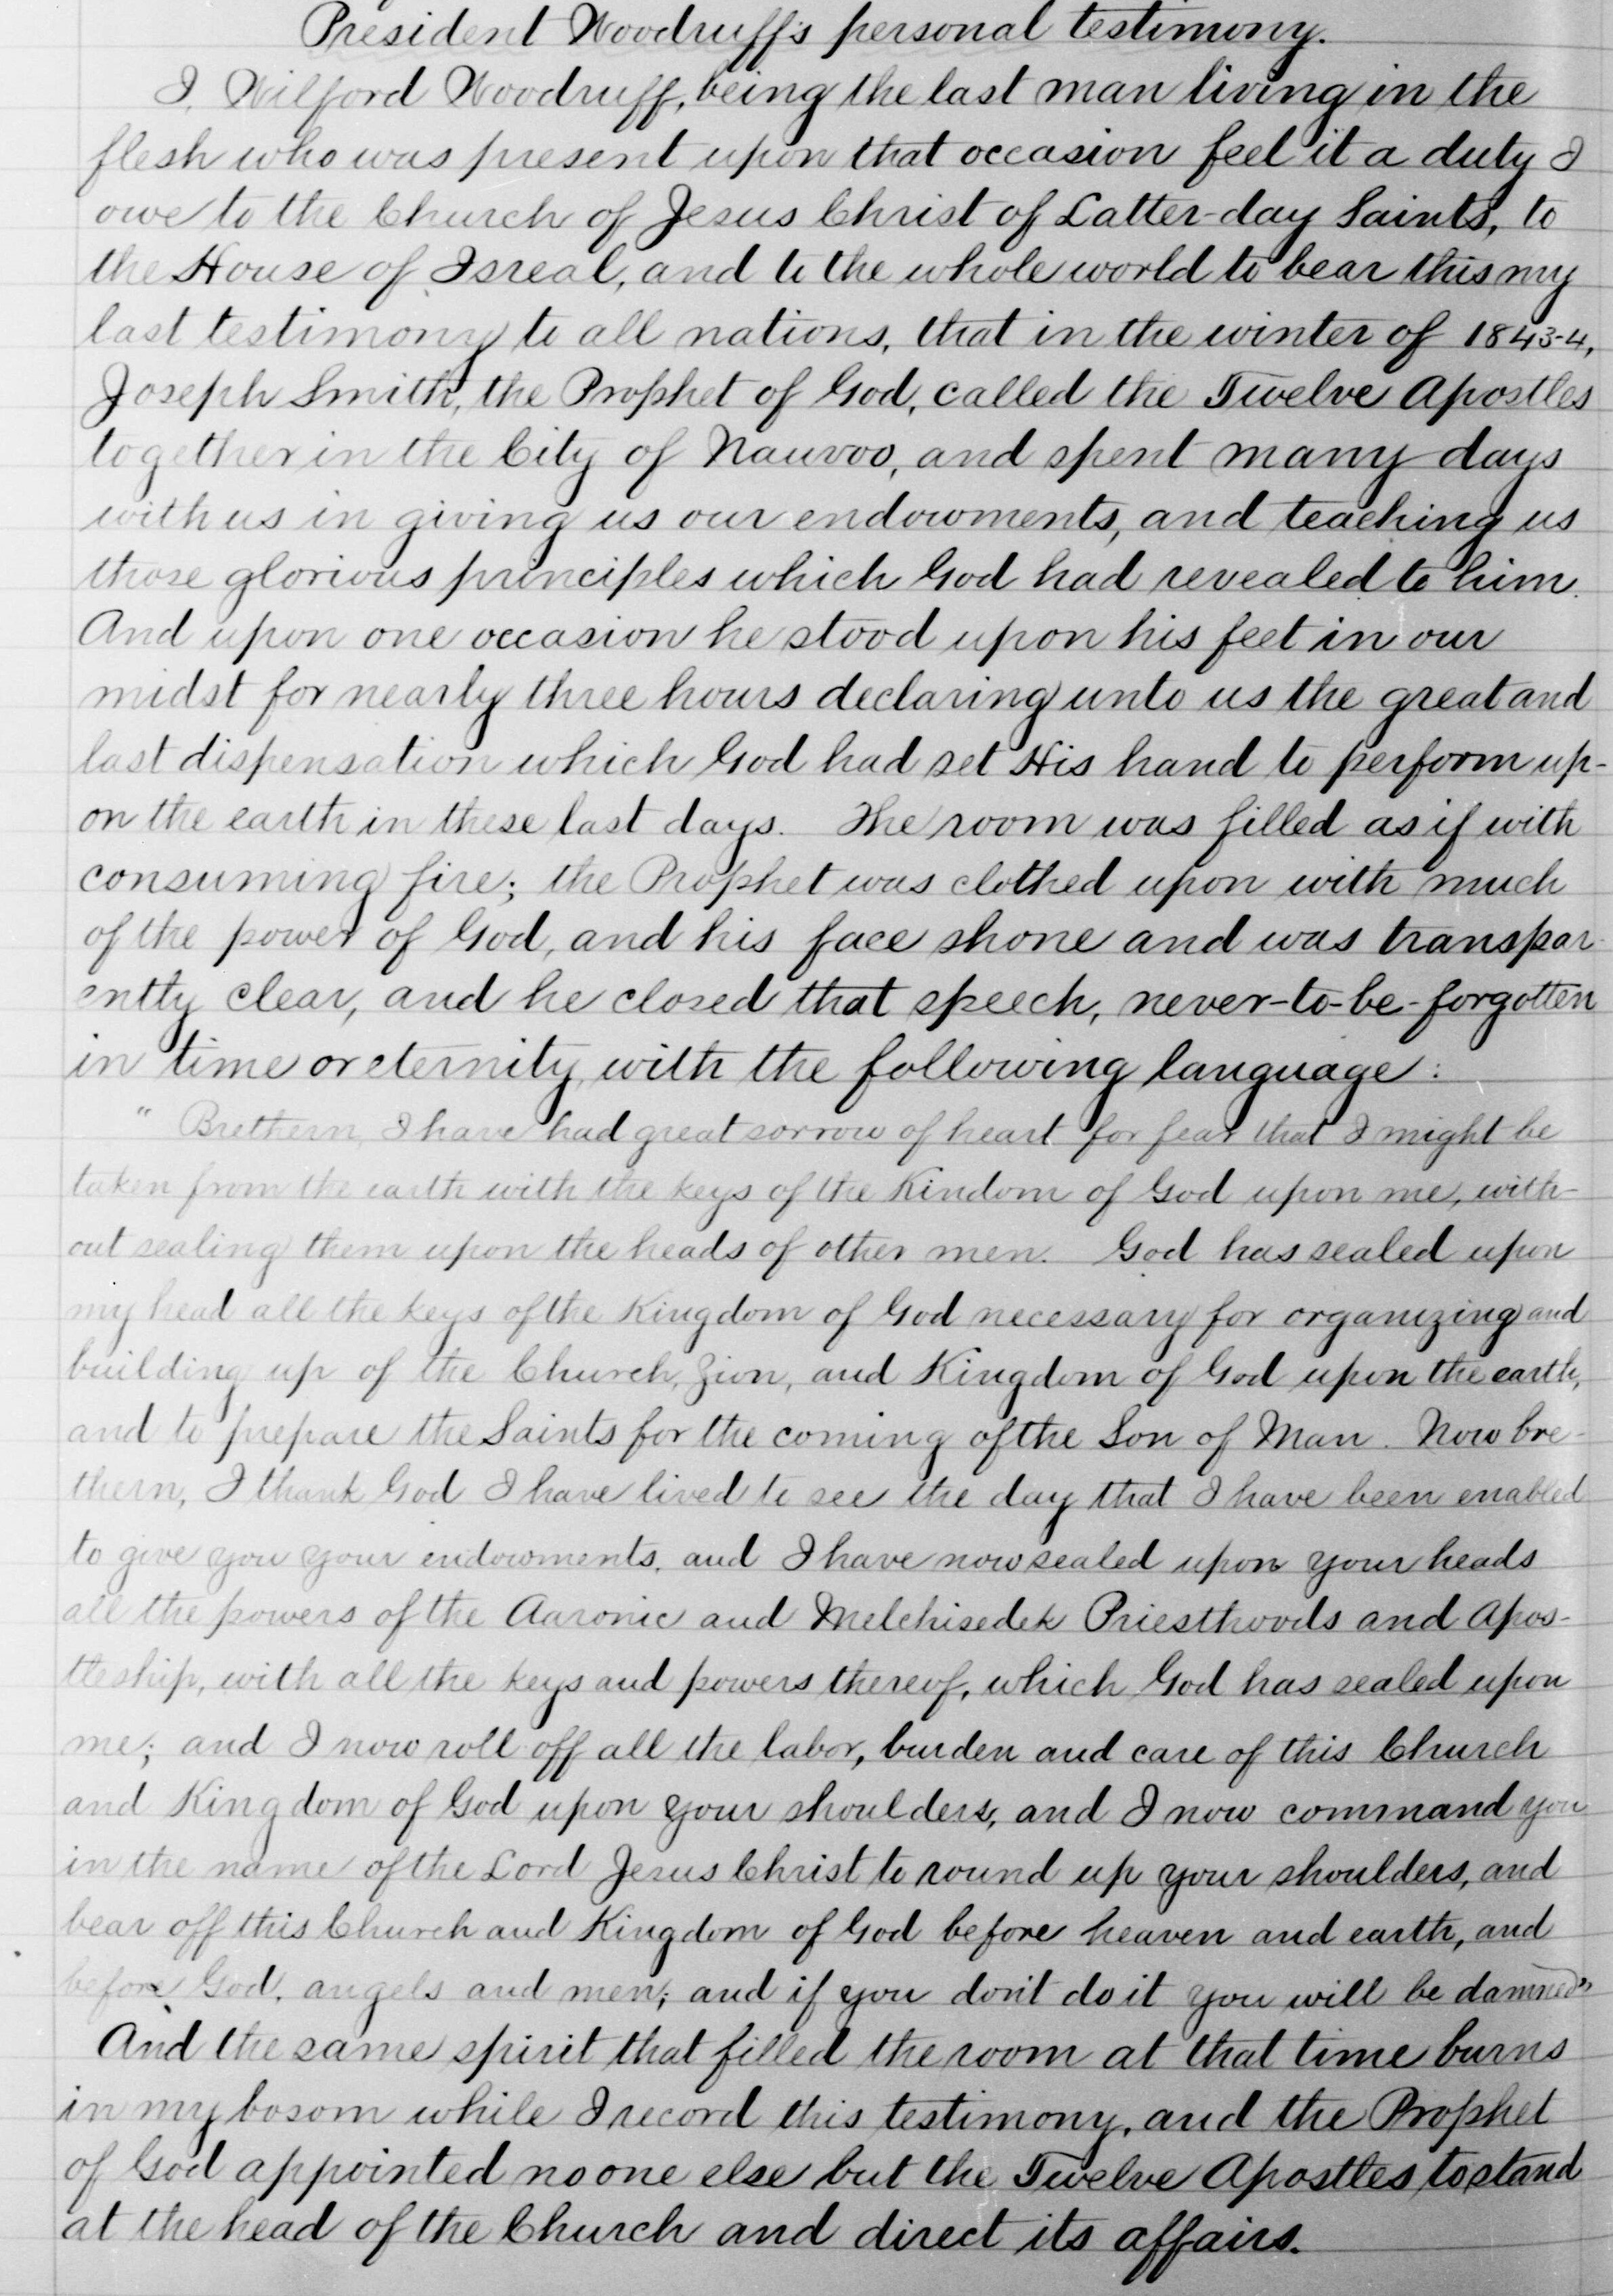 President Woodruff's personal testimony.
I, Wilford Woodruff, being the last man living in the
flesh who was present upon that occasion feel it a duty I
owe to the Church of Jesus Christ of Latter-day Saints, to
the House of Isreal, and to the whole world to bear this my
last testimony to all nations, that in the winter of 1843-4,
Joseph Smith, the Prophet of God, called the Twelve Apostles
together in the City of Nauvoo, and spent many days
with us in giving us our endowments, and teaching us
those glorious principles which God had revealed to him.
And upon one occasion he stood upon his feet in our
midst for nearly three hours declaring unto us the great and
last dispensation which God had set His hand to perform up-
on the earth in these last days. The room was filled as if with
consuming fire; the Prophet was clothed upon with much
of the power of God, and his face shone and was transpar-
ently clear, and he closed that speech, never-to-be-forgotten
in time or eternity, with the following language:
" Brethern, I have had great sorrow of heart for fear that I might be
taken from the earth with the keys of the Kindom of God upon me, with-
out sealing them upon the heads of other men. God has sealed upon
my head all the keys of the Kingdom of God necessary for organizing and
building up of the Church, Zion, and Kingdom of God upon the earth,
and to prepare the Saints for the coming of the Son of Man. Now bre-
thern, I thank God I have lived to see the day that I have been enabled
to give you your endowments, and I have now sealed upon your heads
all the powers of the Aaronic and Melchisedek Priesthoods and Apos-
tleship, with all the keys and powers thereof, which God has sealed upon
me; and I now roll off all the labor, burden and care of this Church
and Kingdom of God upon your shoulders, and I now command you
in the name of the Lord Jesus Christ to round up your shoulders, and
bear off this Church and Kingdom of God before heaven and earth, and
before God, angels and men; and if you don't do it you will be damned"
And the same spirit that filled the room at that time burns
in my bosom while I record this testimony, and the Prophet
of God appointed no one else but the Twelve Apostles to stand
at the head of the Church and direct its affairs.